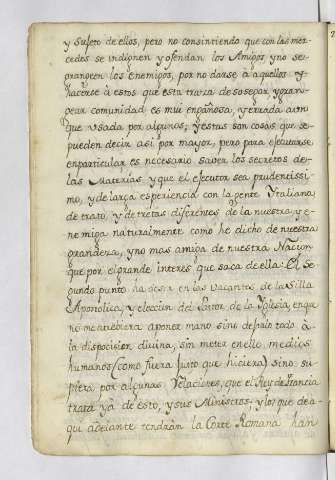 y sujeto de ellos, pero no consintiendo que con las mer-
cedes se indignen y ofendan los Amigos y no se
grangeen los enemigos, por no darse à aquellos y
hacerce à estos que esta traza de sosegar y gran-
gear comunidad es mui engañosa, y errada aun
que vsada por algunos; y estas son cosas que se
pueden decir asi por mayor, pero para ejecutarse
en particular es necesario saver los secretos de
las Materias y que el ejecutor sea prudentissi-
mo, y de larga esperiencia con la gente Ytaliana
de trato, y de tretas diferentes de la nuestra y e-
nemiga naturalmente como he dicho de nuestra
grandeza, y no mas amiga de nuestra Nacion
que por el grande interes que saca de ella: El Se-
gundo punto ha de ser en las Vacantes de la Silla
Apostolica, y eleccion del Pastor de la Yglesia, en que
no me atreviera à poner mano sino dejarlo todo à
la disposicion divina, sin meter en ello medios
humanos (como fuera justo que hiciera) sino su-
piera por algunas Relaciones, que el Rey de Francia
trata ya de esto, y sus Ministros; y los que de a-
qui adelante tendràn la Corte Romana han